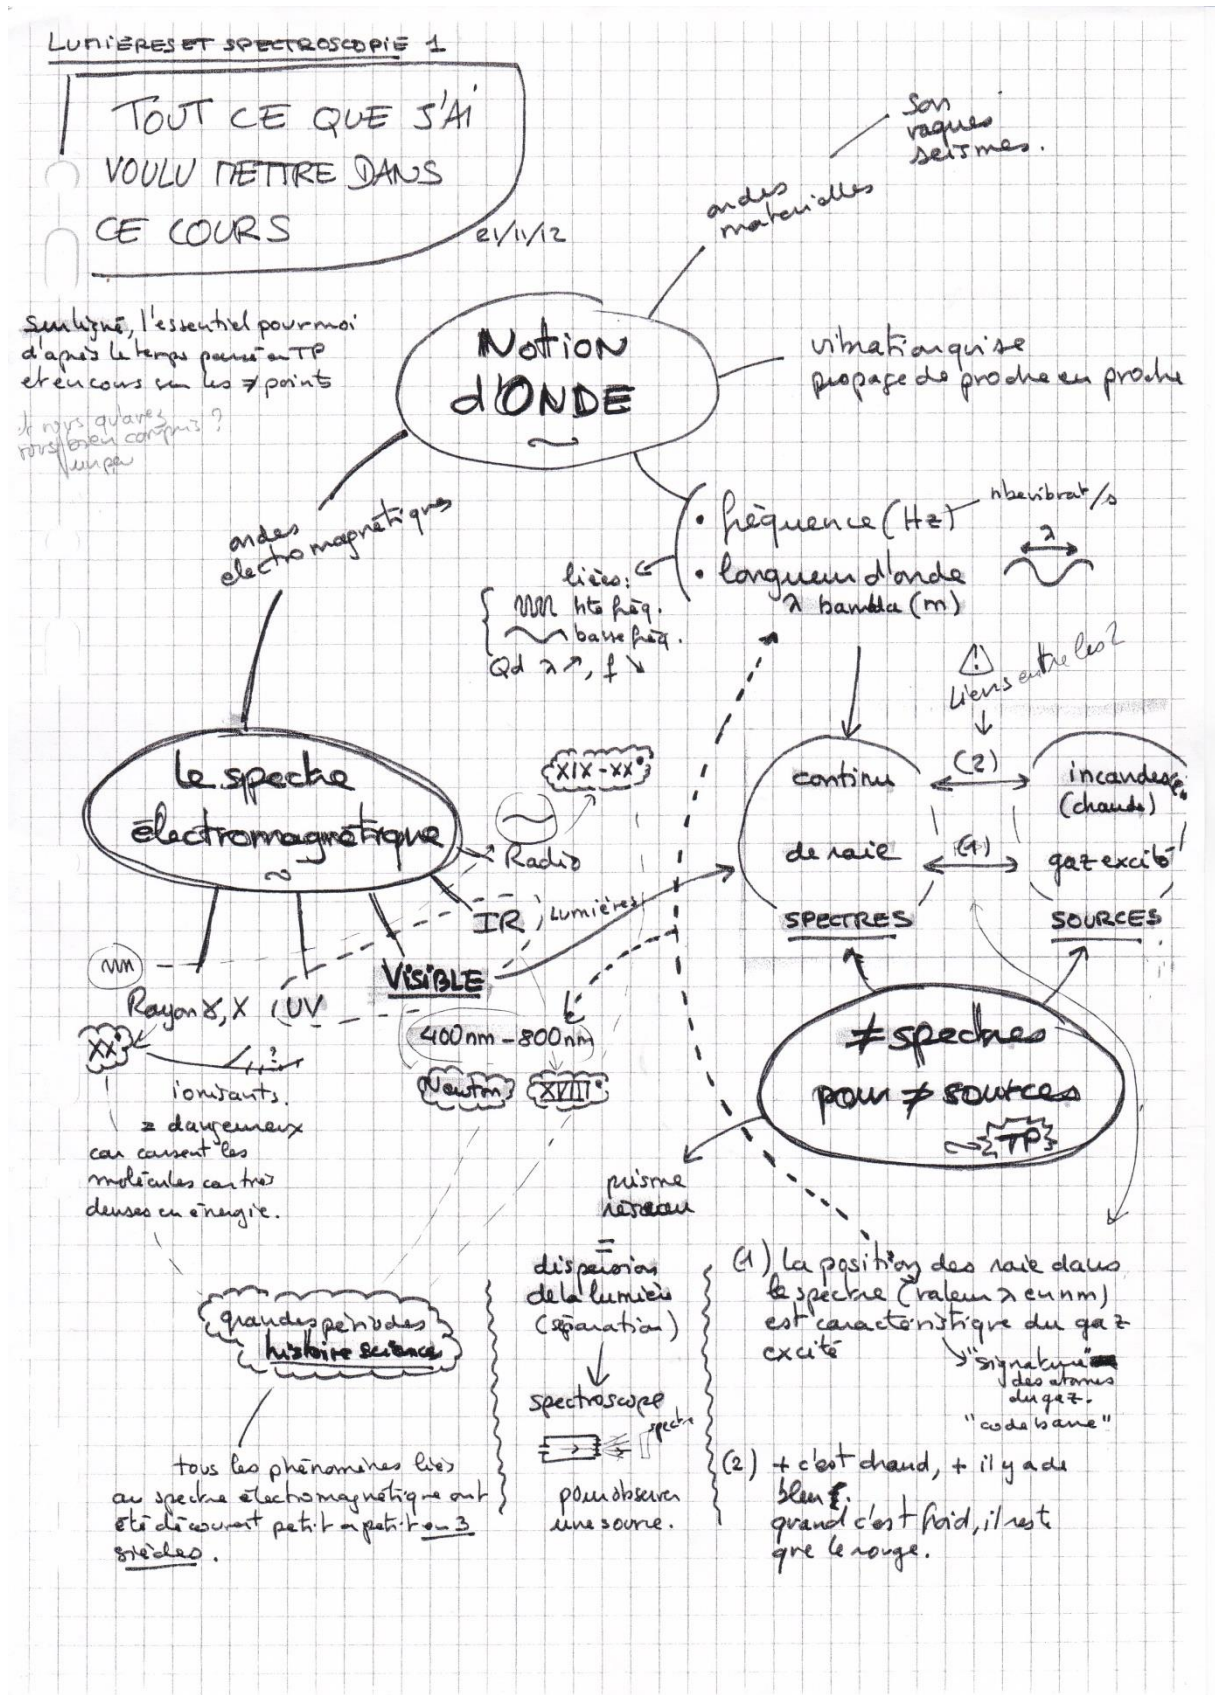 LUMIÈRES ET SPECTROSCOPIE 1
TOUT CE QUE J'AI
VOULU METTRE DANS
CE COURS
21/11/12
son
vagues
seismes.
ondes
materielles
Surligné, l'essentiel pour moi
d'après le temps passé en TP
et en cours sur les ≠ points
et vous qu'avez
vous bien compris ?
un peu
Notion
d'ONDE
vibration qui se
propage de proche en proche
ondes
electromagnétiques
• fréquence (Hz)
nbe vibrat/s
• longueur d'onde
λ bambda (m)
λ
liées:
hte fréq.
basse fréq.
Qd λ ↗, f ↘
⚠
liens entre les 2
le spectre
électromagnétique
~
XIX-XXe
Radio
IR
Lumières
VISIBLE
400nm-800nm
Newton
XVIIIe
Rayon γ, X
UV
XXe
?
ionisants.
= dangereux
car cassent les
molécules car très
denses en énergie.
continu
(2)
incandesc.
(chaude)
de raie
(1)
gaz excité
SPECTRES
SOURCES
≠ spectres
pour ≠ sources
TP
prisme
réseau
=
dispersion
de la lumière
(séparation)
spectroscope
spectre
pour observer
une source.
grandes périodes
histoire science
tous les phénomènes liés
au spectre électromagnétique ont
été découvert petit a petit en 3
siècles.
(1) la position des raie dans
le spectre (valeur λ en nm)
est caractéristique du gaz
excité
"signature"
des atomes
du gaz.
"code barre"
(2) + c'est chaud, + il y a de
bleu.
quand c'est froid, il reste
que le rouge.